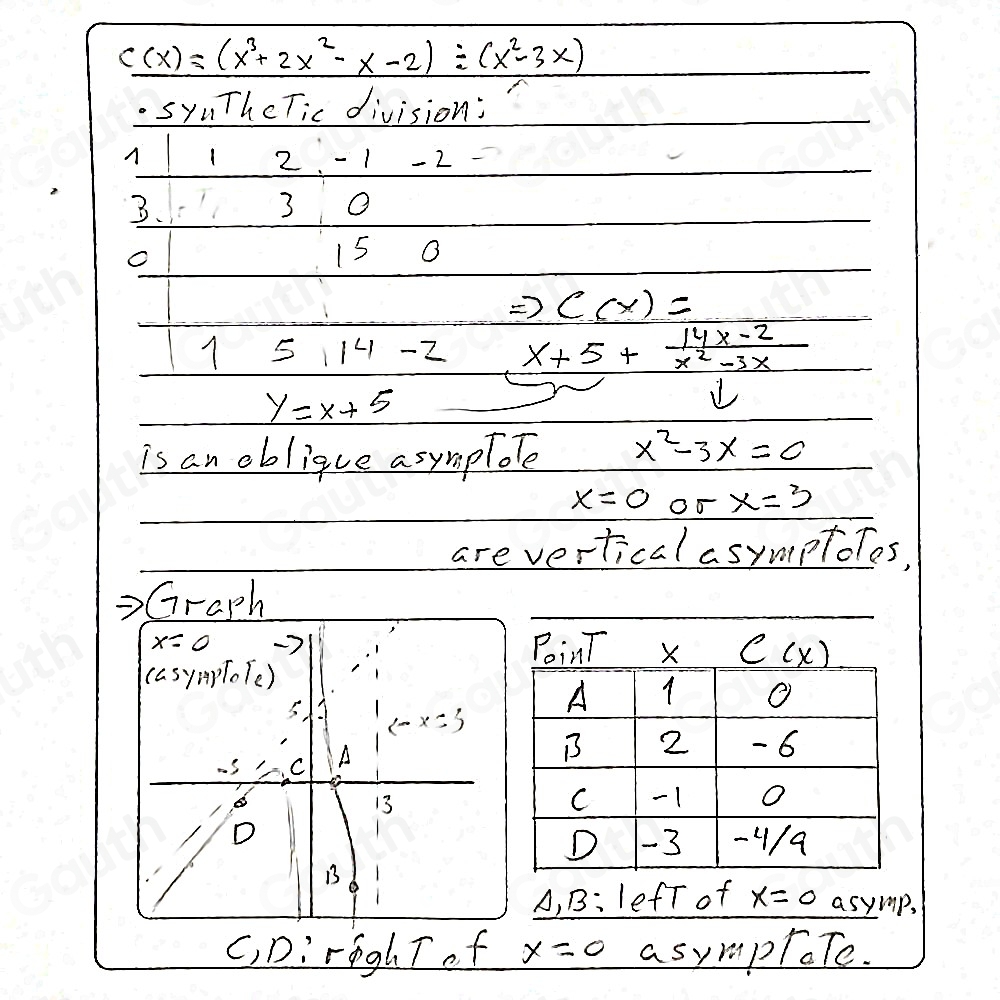 C(x) = (x³ + 2x² - x - 2) ÷ (x² - 3x)
• synthetic division:
1 | 1 2 -1 -2
3 3 0
0 15 0
=> C(x) =
1 5 14 -2 x + 5 + (14x - 2)/(x² - 3x)
y = x + 5 ↓
is an oblique asymptote x² - 3x = 0
x = 0 or x = 3
are vertical asymptotes,
=> Graph
x = 0 ->
(asymptote)
5
<- x = 3
-5 C A
3
D
B
Point x C(x)
A 1 0
B 2 -6
C -1 0
D -3 -4/9
A, B: left of x = 0 asymp.
C, D: right of x = 0 asymptote.
Gauth